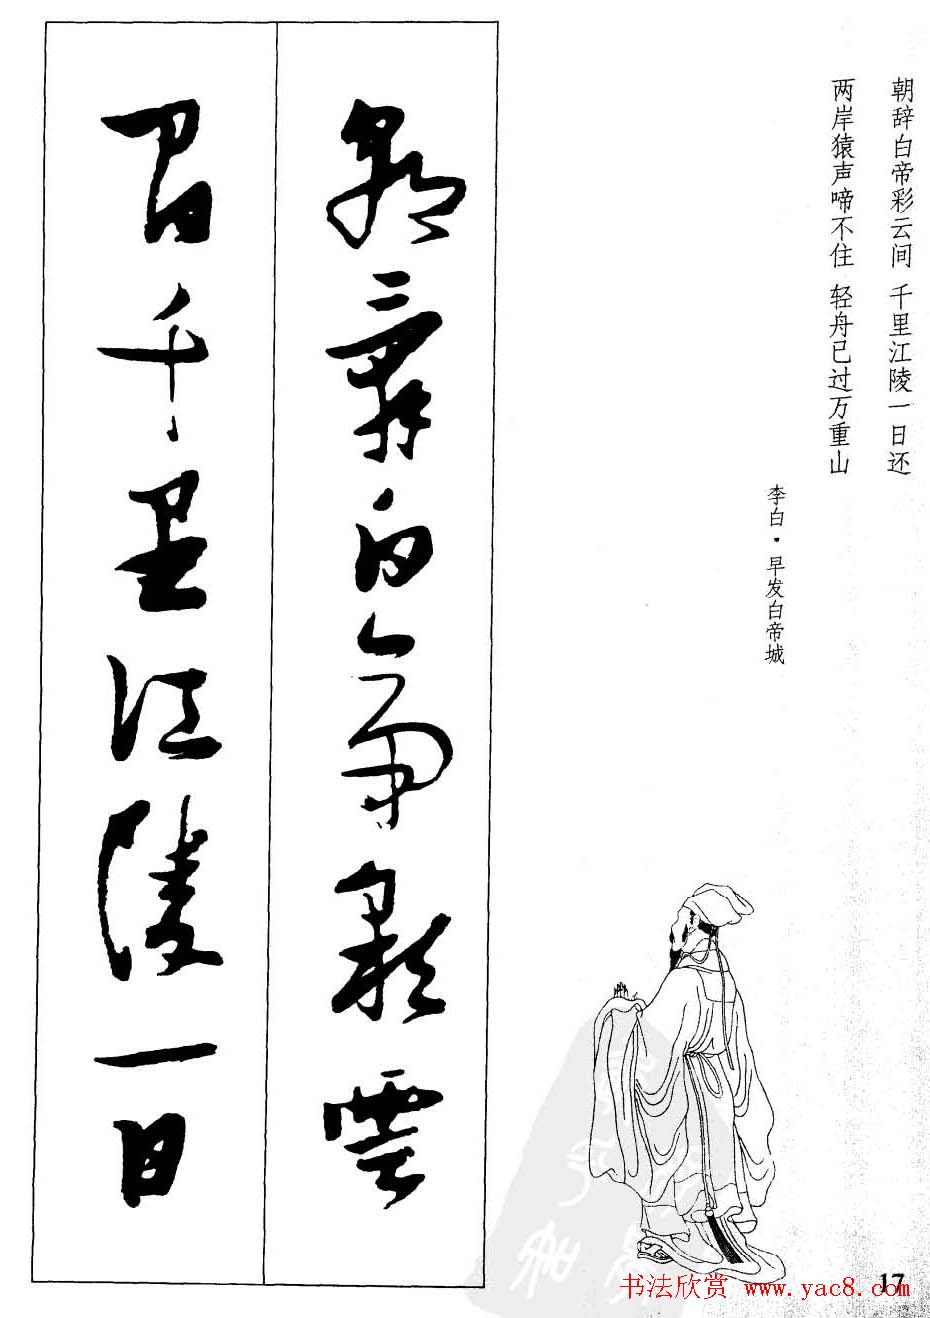 朝辞白帝彩云间 千里江陵一日还
两岸猿声啼不住 轻舟已过万重山
李白·早发白帝城
朝辭白帝彩雲
間千里江陵一日
书法欣赏 www.yac8.com
17